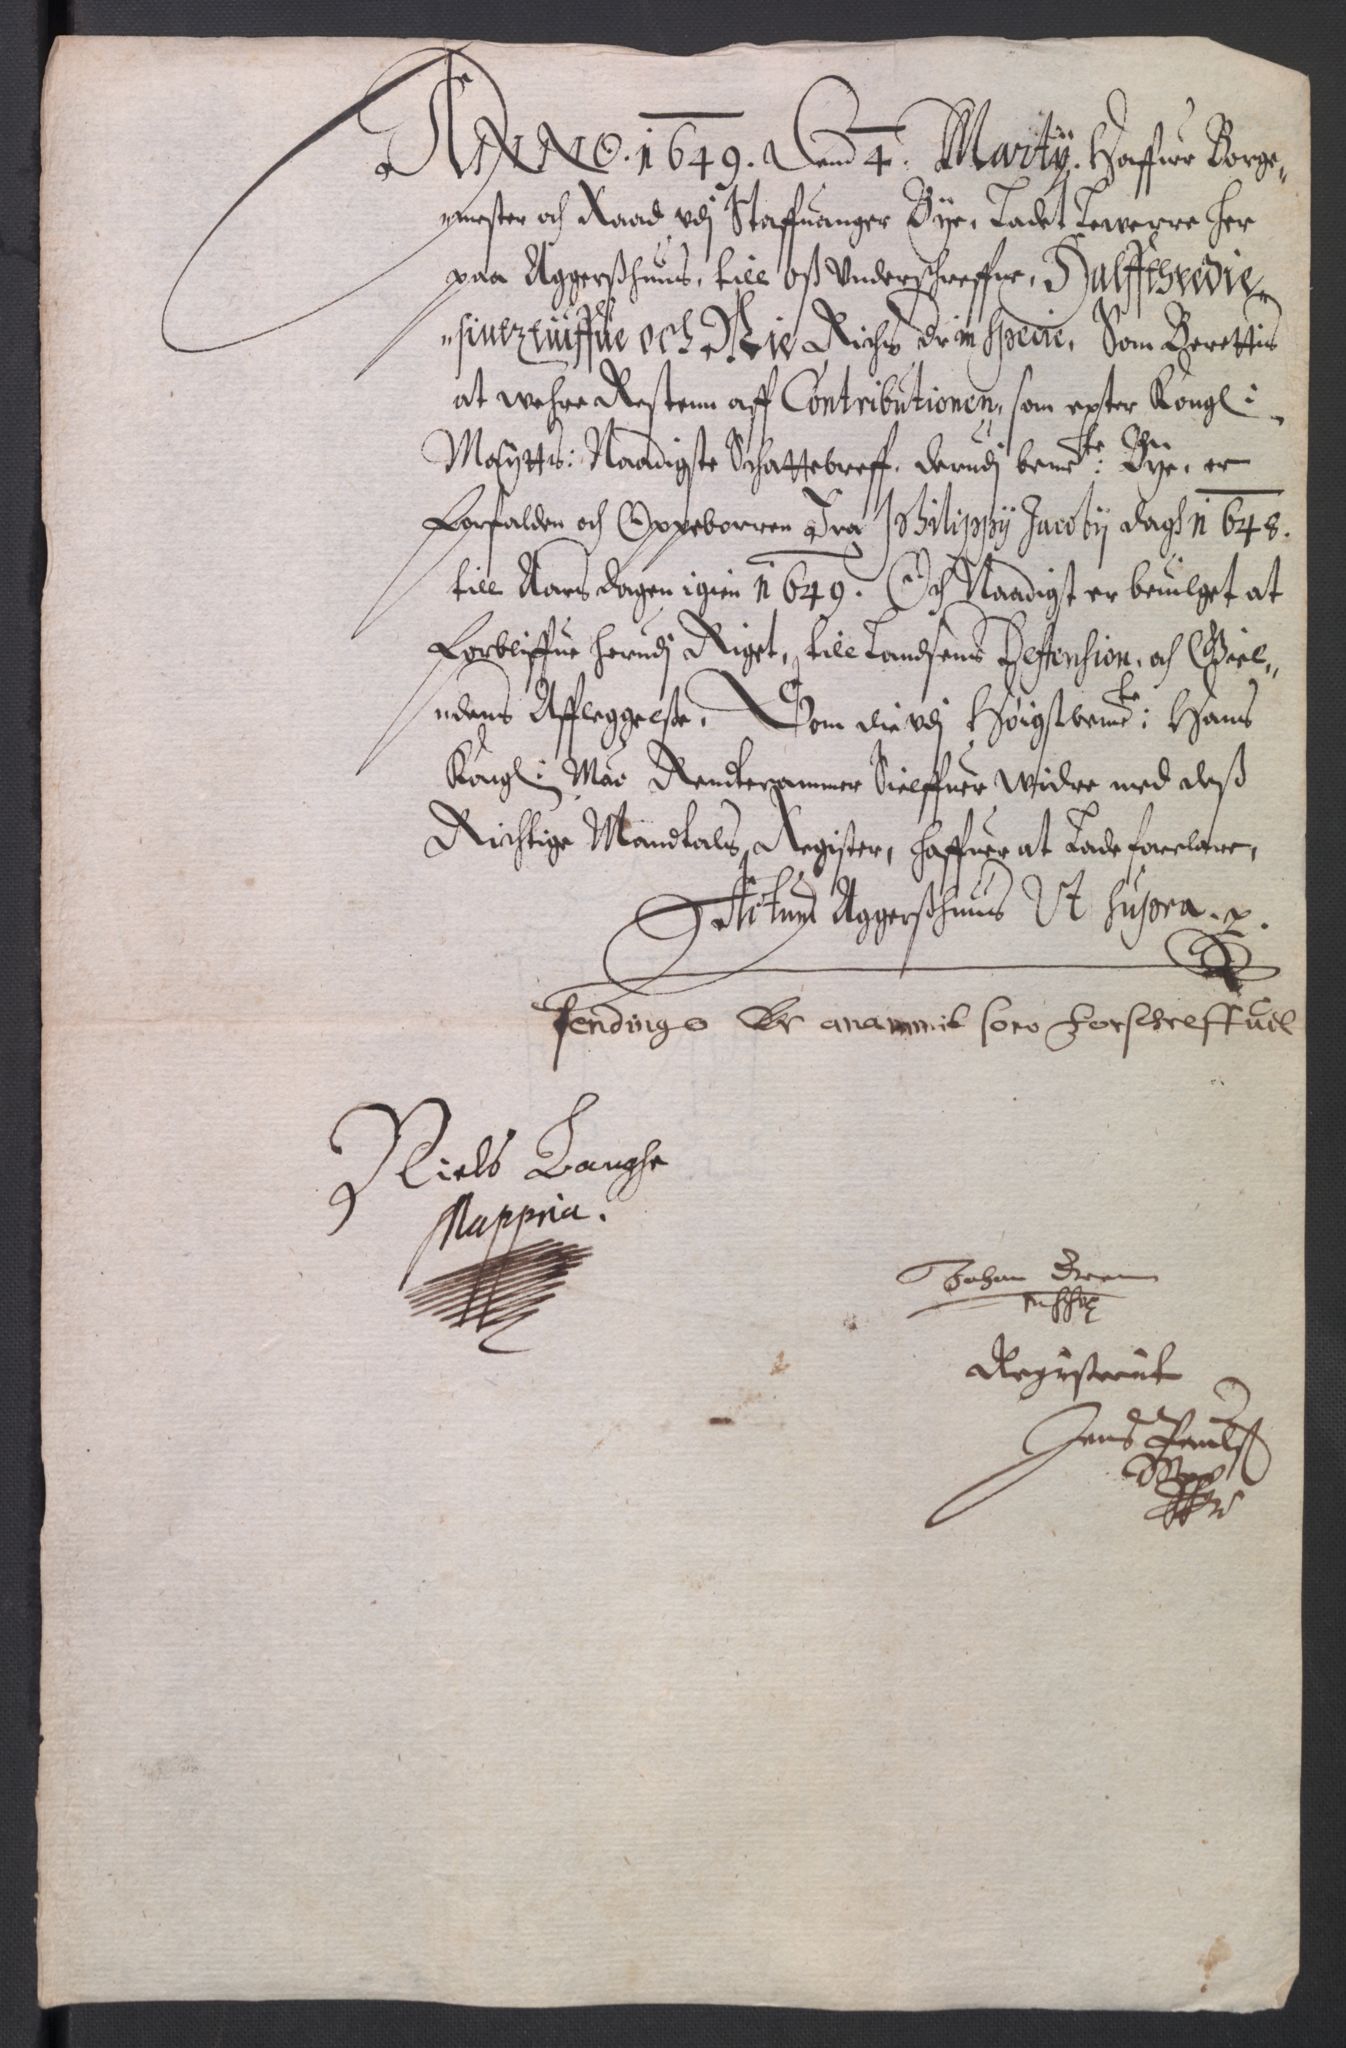 ANNO. 1649. Dend 4. Martÿ. Haffuer Borge-
mester och Raad vdj Staffuanger Bÿe, Ladet Lewerre her
paa Aggershuus, till oß Underschreffne, Halfftredie-
sindztiuffue och Nie Richs dr in specie, Som Berettis
at wehre Restenn aff Contributionen, som epter Kongl:
Maÿtts: Naadigste Schattebreff, derudj bemte: Bÿe, er
Forfalden och Oppeborren Fra Philippÿ Jacobÿ dagh 1648.
till Aars dagen igien 1649. Och Naadigst er beuilget at
Forbliffue herudj Riget, till Landsens Deffension, och Giel-
dens Affleggelse, Som die vdj Høigstbemte: Hans
Kongl: Maÿ Rentecammer Sielffuer widre med deß
Richtige Mandtals Register, haffuer at Lade forclare,
Actum Aggershuus Ut supra.
Pendinge Er anammit som forschreffuit
Niels Langhe
Mappria.
Johan
Registerut
Jens Pauls